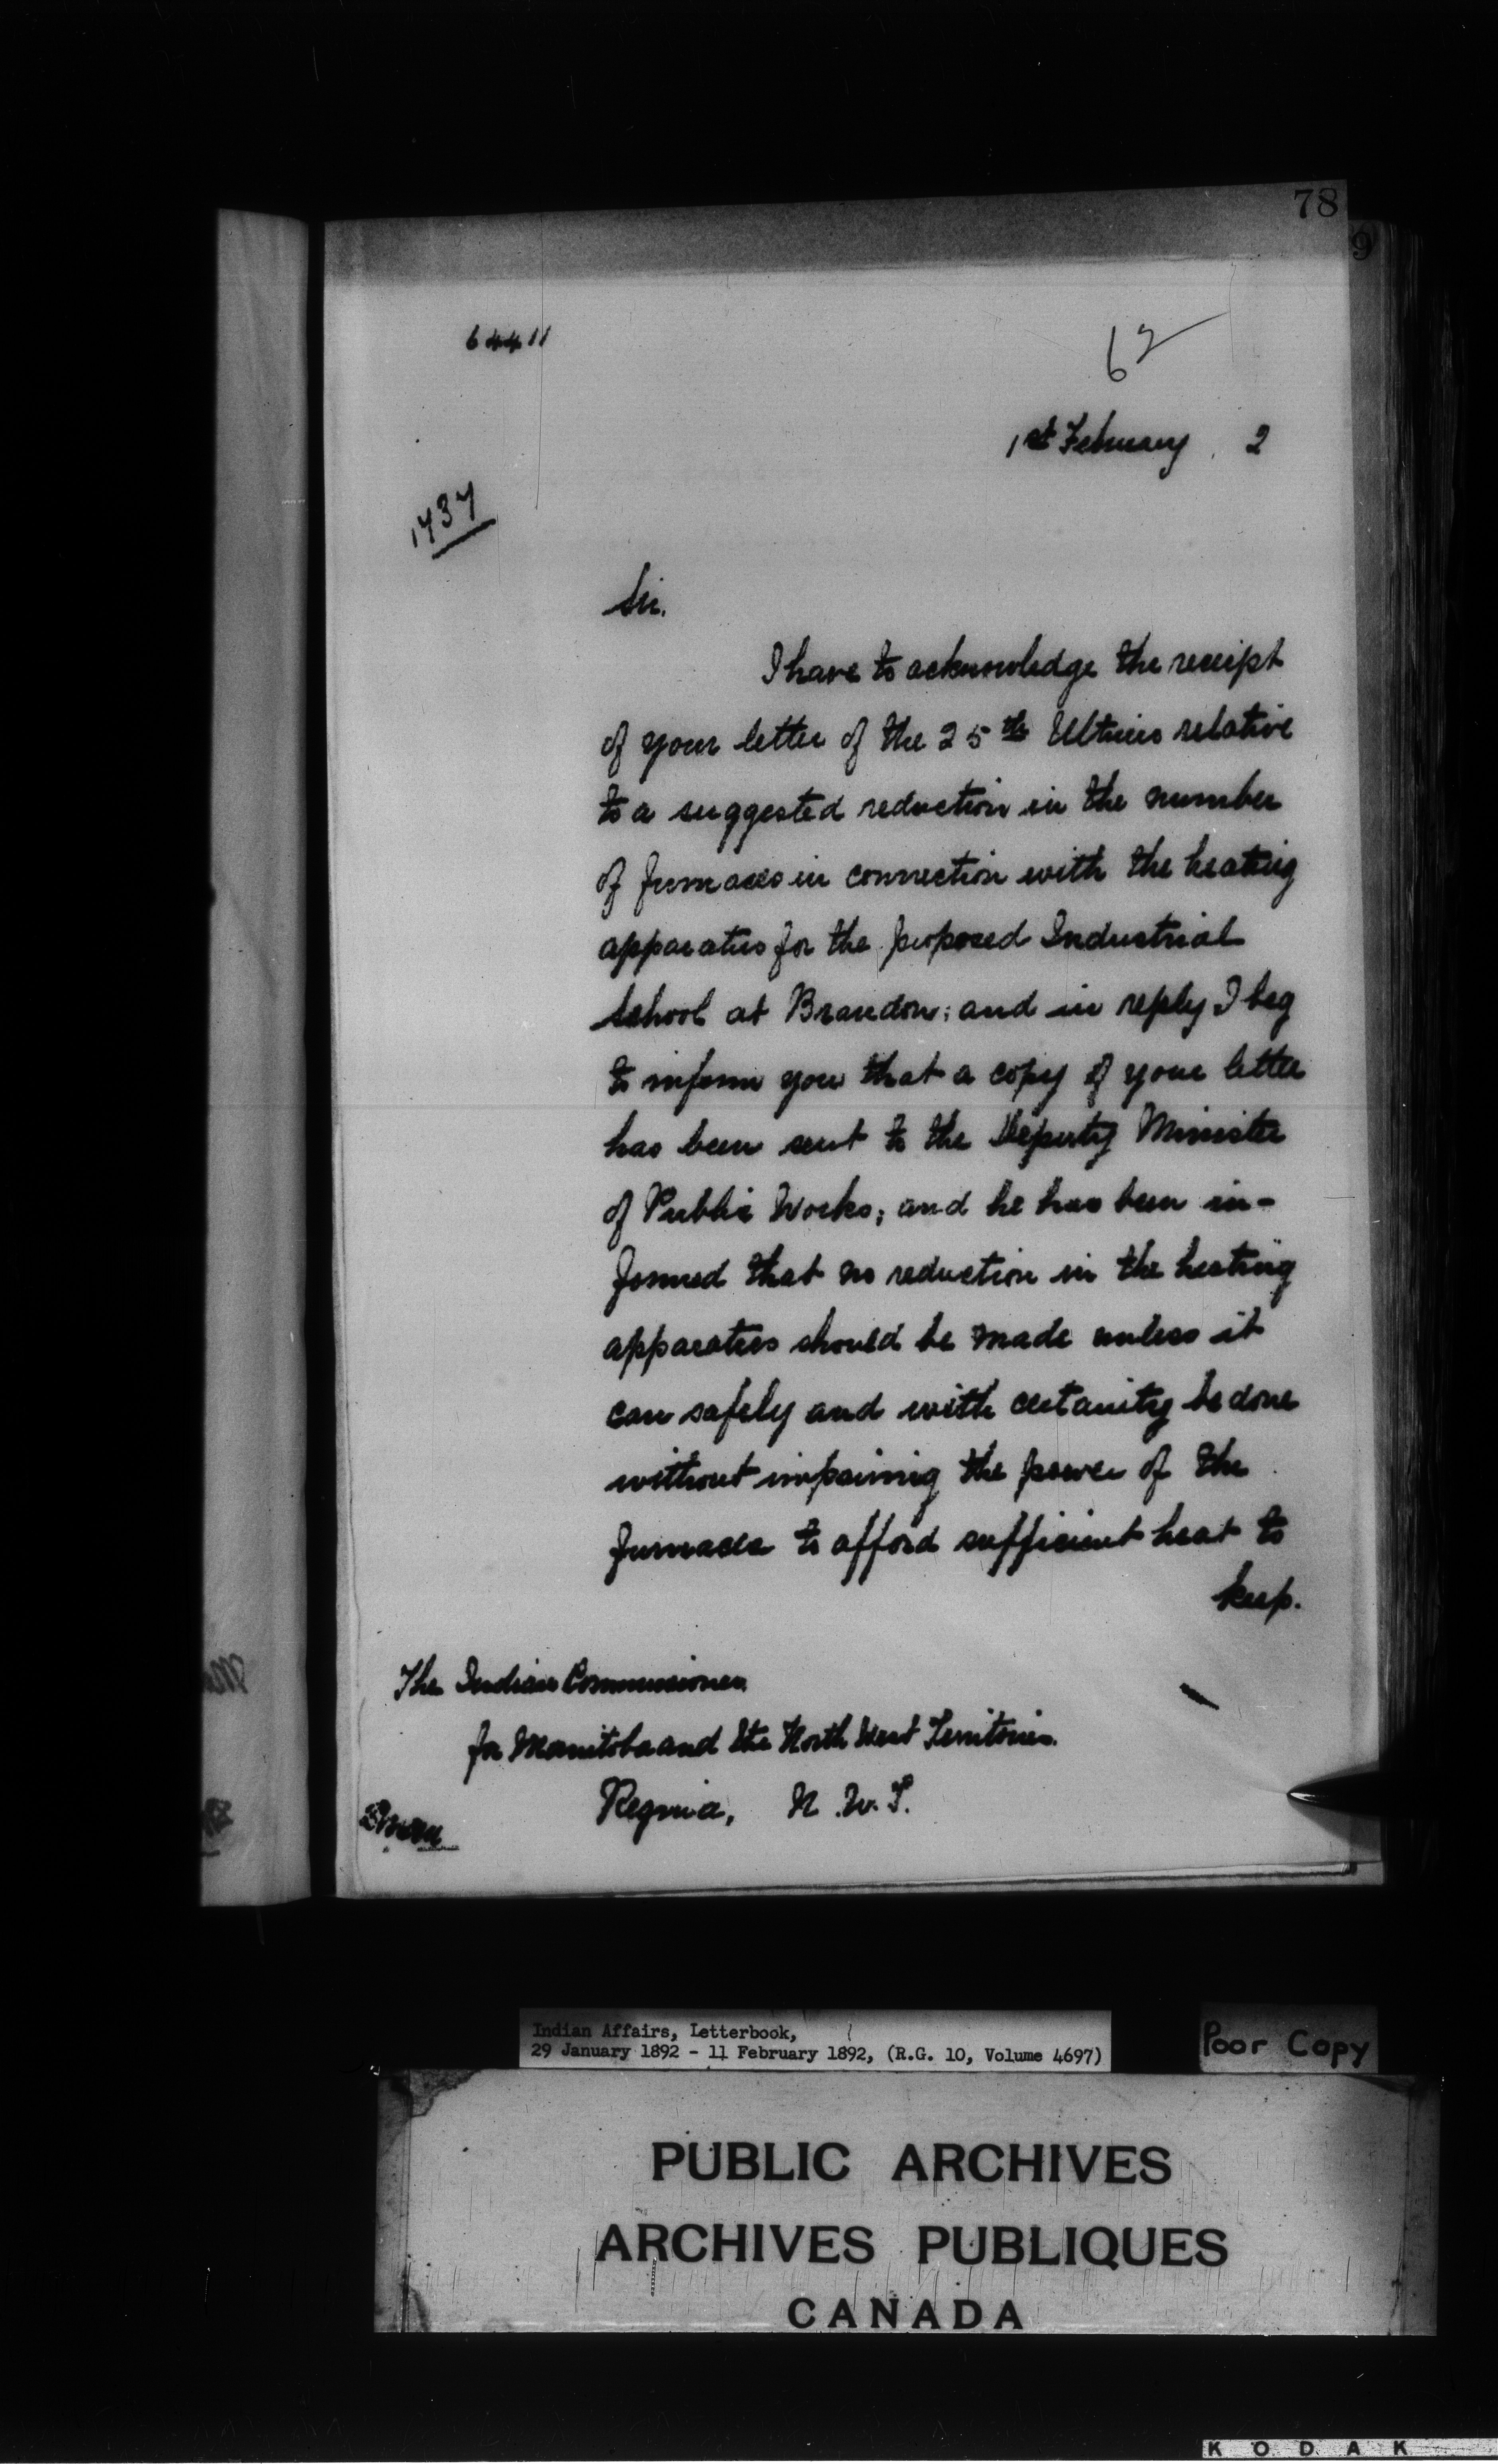 78
9
64411
62
1st February, 2
1737
Sir.
I have to acknowledge the receipt
of your letter of the 25th Ultimo relative
to a suggested reduction in the number
of furnaces in connection with the heating
apparatus for the proposed Industrial
School at Brandon; and in reply I beg
to inform you that a copy of your letter
has been sent to the Deputy Minister
of Public Works; and he has been in-
formed that no reduction in the heating
apparatus should be made unless it
can safely and with certanity be done
without impairing the power of the
furnaces to afford sufficient heat to
keep.
The Indian Commissioner
for Manitoba and the North West Territories.
Regina, N.W.T.
Indian Affairs, Letterbook,
29 January 1892 - 11 February 1892, (R.G. 10, Volume 4697)
Poor Copy
PUBLIC ARCHIVES
ARCHIVES PUBLIQUES
CANADA
KODAK